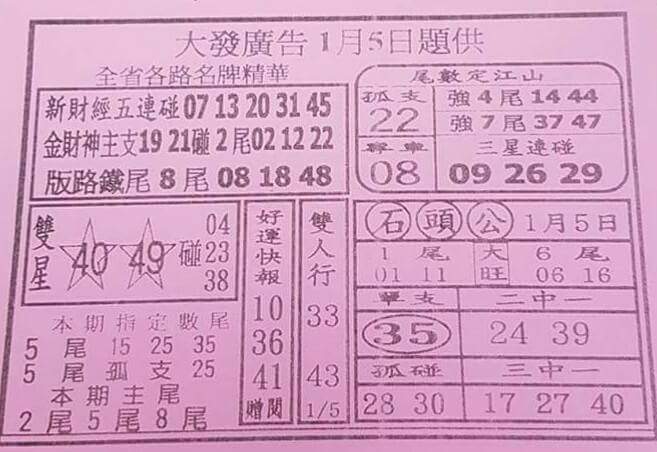 大發廣告1月5日題供
全省各路名牌精華
新財經五連碰 07 13 20 31 45
金財神主支 19 21碰 2 尾 02 12 22
版路鐵尾 8 尾 08 18 48
尾數定江山
孤支 22
強 4 尾 14 44
強 7 尾 37 47
08
三星連碰
09 26 29
雙星 40 49 碰 04 23 38
本期指定數尾
5 尾 15 25 35
5 尾 孤支 25
本期主尾
2尾5尾8尾
好運快報
10
36
41
贈閱
雙人行
33
43
1/5
石頭公 1月5日
1 尾 大旺 6 尾
01 11 06 16
單支 二中一
35 24 39
孤碰 三中一
28 30 17 27 40